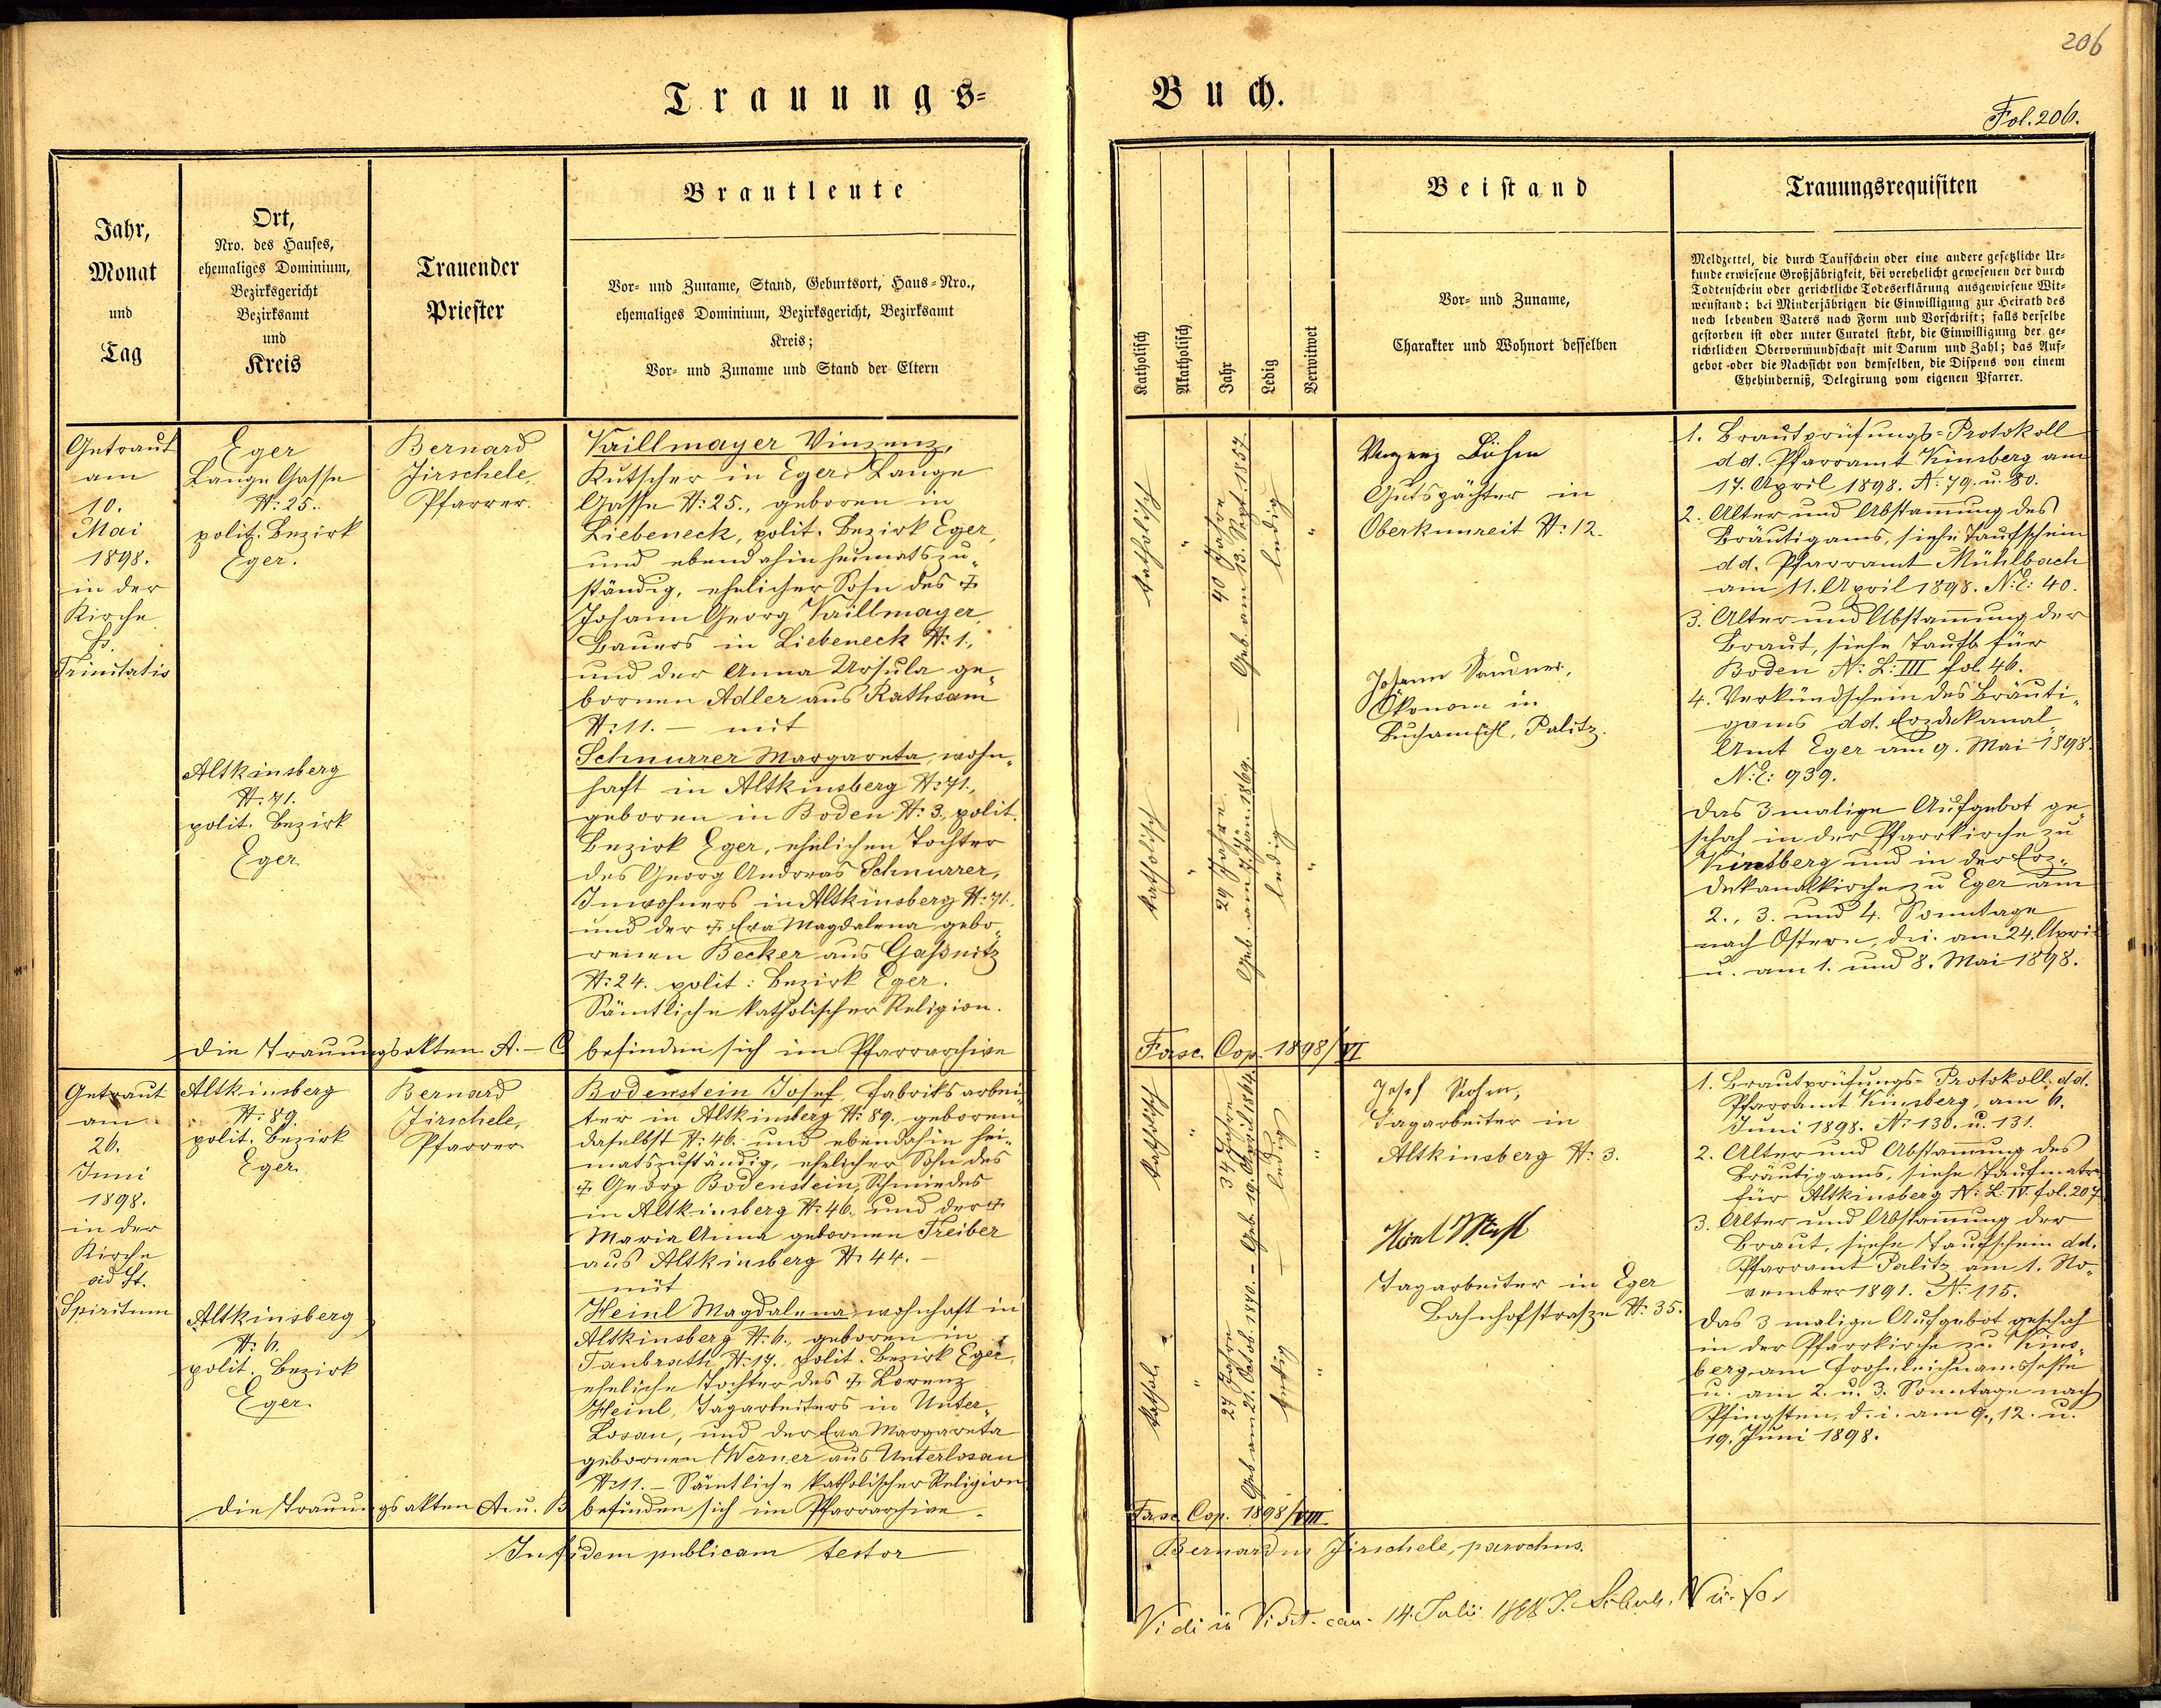 206
Trauungs=
Buch.
Fol. 206.
Jahr,
Monat
und
Tag
Ort,
Nro. des Hauses,
ehemaliges Dominium,
Bezirksgericht
Bezirksamt
und
Kreis
Trauender
Priester
Brautleute
Vor- und Zuname, Stand, Geburtsort, Haus-Nro.,
ehemaliges Dominium, Bezirksgericht, Bezirksamt
Kreis;
Vor- und Zuname und Stand der Eltern
Katholisch
Akatholisch
Jahr
Ledig
Verwitwet
Beistand
Vor- und Zuname,
Charakter und Wohnort desselben
Trauungsrequisiten
Meldzettel, die durch Taufschein oder eine andere gesetzliche Ur-
kunde erwiesene Großjährigkeit, bei verehelicht gewesenen der durch
Todtenschein oder gerichtliche Todeserklärung ausgewiesene Wit-
wenstand; bei Minderjährigen die Einwilligung zur Heirath des
noch lebenden Vaters nach Form und Vorschrift; falls derselbe
gestorben ist oder unter Curatel steht, die Einwilligung der ge-
richtlichen Obervormundschaft mit Datum und Zahl; das Auf-
gebot oder die Nachsicht von demselben, die Dispens von einem
Ehehinderniß, Delegirung vom eigenen Pfarrer.
Getraut
am
10.
Mai
1898.
in der
Kirche
Trinitatis
Eger
Lange Gasse
N: 25.
polit. Bezirk
Eger.
Altkinsberg
N: 71.
polit. Bezirk
Eger
Bernard
Jirschele,
Pfarrer.
Vaillmayer Vinzenz,
Kutscher in Eger, Lange
Gasse N: 25., geboren in
Liebeneck, polit. Bezirk Eger,
und ebendahin heimatszu„
ständig, ehelicher Sohn des †
Johann Georg Vaillmayer,
Bauers in Liebeneck N: 1.,
und der Anna Ursula ge„
bornen Adler aus Rathsam
N: 11. — mit
Schnurrer Margareta, wohn„
haft in Altkinsberg N: 71.,
geboren in Boden N: 3., polit.
Bezirk Eger, ehelichen Tochter
des Georg Andreas Schnurrer,
Inwohners in Altkinsberg N: 71.
und der † Eva Magdalena gebo„
renen Becker aus Gaßnitz
N: 24. polit: Bezirk Eger.
Sämtliche katholischer Religion.
Die Trauungsakten A. – C befinden sich im Pfarrarchive
katholisch
"
40 Jahre
Geb. am 13. Sept. 1857.
ledig
"
katholisch
"
29 Jahre
Geb. am 7. Jän. 1869.
ledig
"
Vinzenz Böhm
Gutspächter in
Oberkunreit N: 12.
Johann
Ökonom in
Palitz.
1. Brautprüfungs-Protokoll
dd. Pfarramt Kinsberg am
17. April 1898. N: 79. u. 80.
2. Alter und Abstamung des
Bräutigams, siehe Taufschein
dd. Pfarramt Mühlbach
am 11. April 1898. N: E: 40.
3. Alter und Abstamung der
Braut, siehe Taufb. für
Boden N: L: III fol. 46.
4. Verkündschein des Bräuti„
gams dd. Erzdekanal
Amt Eger am 9. Mai 1898.
N: E: 939.
Das 3malige Aufgebot ge„
schah in der Pfarrkirche zu
Kinsberg und in der Erz„
dekanalkirche zu Eger am
2., 3. und 4. Sonntage
nach Ostern, d.i. am 24. April
u. am 1. und 8. Mai 1898.
Fasc. Cop. 1898/VI
Getraut
am
26.
Juni
1898.
in der
Kirche
ad St.
Spiritum
Altkinsberg
N: 89.
polit. Bezirk
Eger
Altkinsberg
N: 6.
polit. Bezirk
Eger
Bernard
Jirschele,
Pfarrer
Bodenstein Josef, Fabriksarbei„
ter in Altkinsberg N: 89. geboren
daselbst N: 46. und ebendahin hei„
matszuständig, ehelicher Sohn des
† Georg Bodenstein, Schmiedes
in Altkinsberg N: 46. und der †
Maria Anna gebornen Treiber
aus Altkinsberg N: 44. –
mit
Heinl Magdalena wohnhaft in
Altkinsberg N: 6., geboren in
Taubrath N: 17., polit. Bezirk Eger,
eheliche Tochter des † Lorenz
Heinl, Tagarbeiters in Unter„
Losau, und der Eva Margareta
gebornen Werner aus Unterlosau
N: 11. – Sämtliche katholischer Religion
Die Trauungsakten A. u. B befinden sich im Pfarrarchive.
katholisch
"
34 Jahre
Geb. 19. April 1864.
ledig
"
kathol.
"
27 Jahre
Geb. am 21. Octob. 1870.
ledig
"
Josef
Tagarbeiter in
Altkinsberg N: 3.
Tagarbeiter in Eger
Bahnhofstraße N: 35.
1. Brautprüfungs-Protokoll dd.
Pfarramt Kinsberg, am 6.
Juni 1898. N: 130. u. 131.
2. Alter und Abstamung des
Bräutigams, siehe Taufmatr.
für Altkinsberg N: L: IV. fol. 207
3. Alter und Abstamung der
Braut, siehe Taufschein dd.
Pfarramt Palitz am 1. No„
vember 1891. N: 115.
Das 3malige Aufgebot geschah
in der Pfarrkirche zu Kins„
berg am Frohnleichnamsfeste
u. am 2. u. 3. Sonntage nach
Pfingsten, d. i. am 9., 12. u.
19. Juni 1898.
Fasc. Cop. 1898/VIII
In fidem publicam testor
Bernardus Jirschele, parochus.
Vidi in Visit. can. 14. Julii